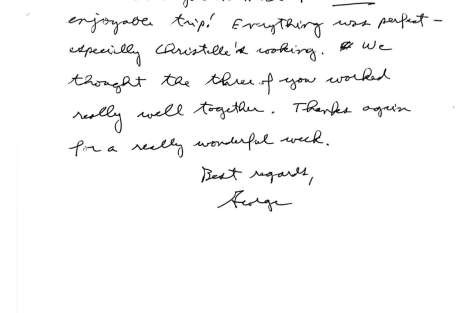 enjoyable trip! Everything was perfect -
especially Christelle's cooking. We
thought the three of you worked
really well together. Thanks again
for a really wonderful week.
Best regards,
George